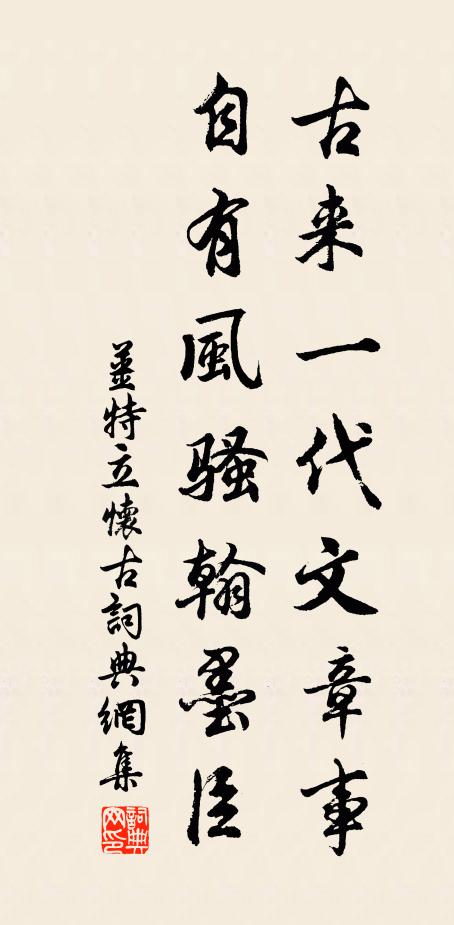 古来一代文章事
自有風骚翰墨臣
薑特立懷古詞典網集
詞典網印